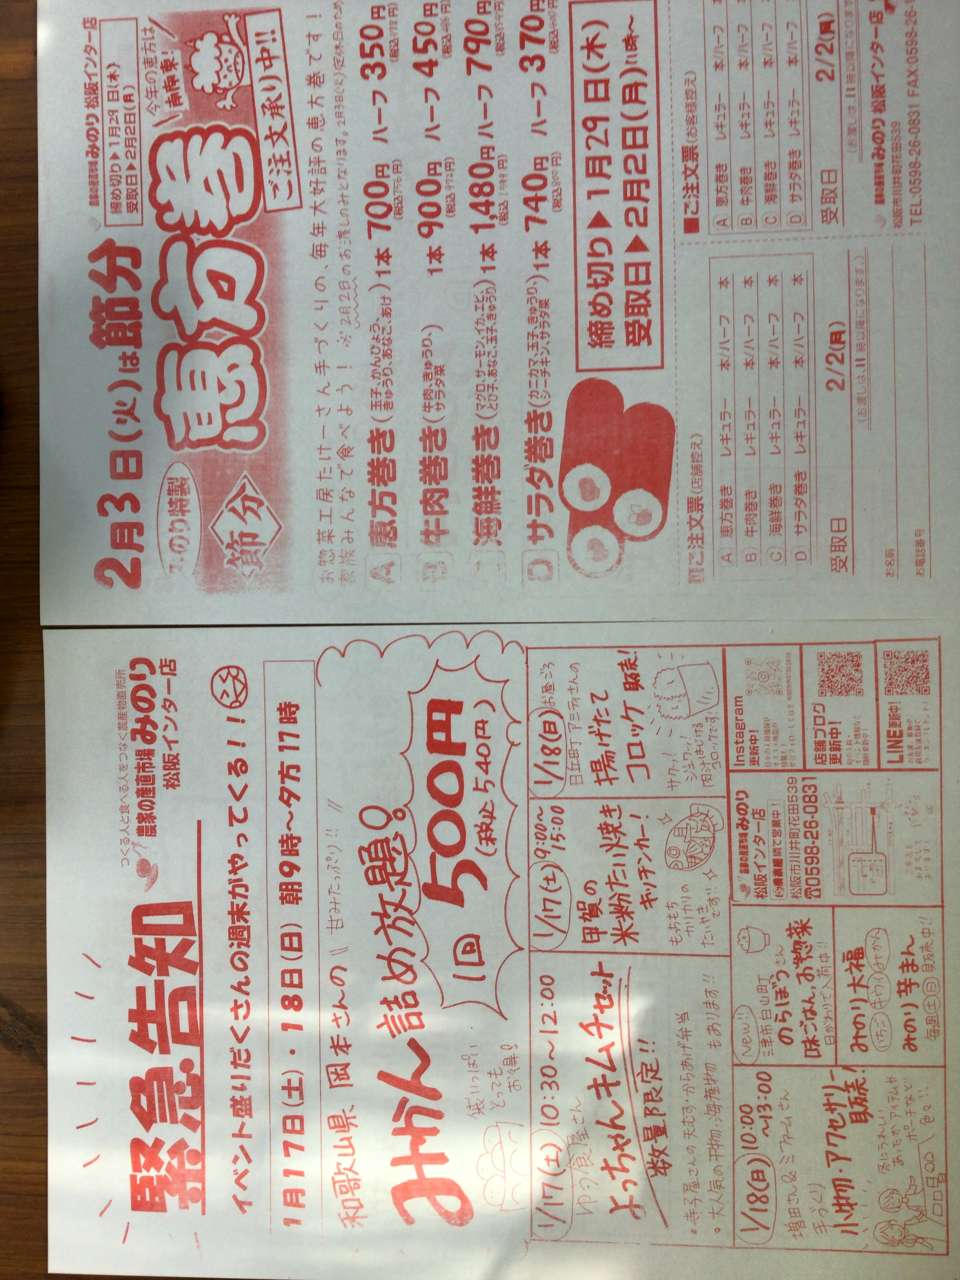 緊急告知
つくる人と食べる人をつなぐ農産物直売所
農家の産直市場 みのり
松阪インター店
イベント盛りだくさんの週末がやってくる!!
1月17日(土)・18日(日) 朝9時〜夕方17時
和歌山県、岡本さんの
甘みたっぷり!!
みかん詰め放題!
袋いっぱい
とっても
お得!
1回 500円
(税込540円)
1/17(土) 10:30〜12:00
ゆう食屋さん
よっちゃんキムチセット
数量限定!!
・寺子屋さんの天むす・からあげ弁当
・大人気の干物・海産物もあります!!
1/17(土) 9:00〜15:00
甲賀の
米粉たい焼き
キッチンカー!
もちもち
カリカリの
たいやき
です!!
1/18(日) お昼ごろ
日丘町アミティさんの
揚げたて
コロッケ 販売!
サクッ!
ジュワッ!
コロッケです
1/18(日) 10:00〜13:00
増田さん&ミファームさん
手づくり
小物・アクセサリー
販売!
New!!
三津市白山町
のらぼうさん
味ごはん、お惣菜
日がわりで入荷中!!
みのり大福
いちご
みかん
みのり芋まん
毎週土日販売中!!
Instagram
更新中!
店舗ブログ
更新中!
LINE更新中!
農家の産直市場 みのり
松阪インター店
松阪市川井町花田539
☎0598-26-0831
2月3日(火)は節分
農家の産直市場 みのり 松阪インター店
締め切り▶1月29日(木)
受取日▶2月2日(月)
みのり特製
節分
恵方巻
今年の恵方は
南南東!
ご注文承り中!!
お惣菜工房たけーさん手づくりの、毎年大好評の恵方巻です!
家族みんなで食べよう! ※2月2日のお渡しのみとなります。2月3日(火)定休日のため
A 恵方巻き(玉子、かんぴょう、きゅうり、あなご、あげ) 1本 700円(税込756円) ハーフ 350円(税込378円)
B 牛肉巻き(牛肉、きゅうり、サラダ菜) 1本 900円(税込972円) ハーフ 450円(税込486円)
C 海鮮巻き(マグロ、サーモン、イカ、エビ、とび子、あなご、玉子、きゅうり) 1本 1,480円 ハーフ 790円
D サラダ巻き(カニカマ、玉子、きゅうり、シーチキン、サラダ菜) 1本 740円 ハーフ 370円
締め切り▶1月29日(木)
受取日▶2月2日(月)(11時〜)
■ご注文票(店舗控え)
A 恵方巻き レギュラー 本/ハーフ 本
B 牛肉巻き レギュラー 本/ハーフ 本
C 海鮮巻き レギュラー 本/ハーフ 本
D サラダ巻き レギュラー 本/ハーフ 本
受取日 2/2(月)
(お渡しは、11時以降になります。)
お名前
お電話番号
■ご注文票(お客様控え)
A 恵方巻き レギュラー 本/ハーフ
B 牛肉巻き レギュラー 本/ハーフ
C 海鮮巻き レギュラー 本/ハーフ
D サラダ巻き レギュラー 本/ハーフ
受取日 2/2(月)
(お渡しは、11時以降になります
農家の産直市場 みのり 松阪インター店
松阪市川井町花田539
TEL.0598-26-0831 FAX.0598-26-